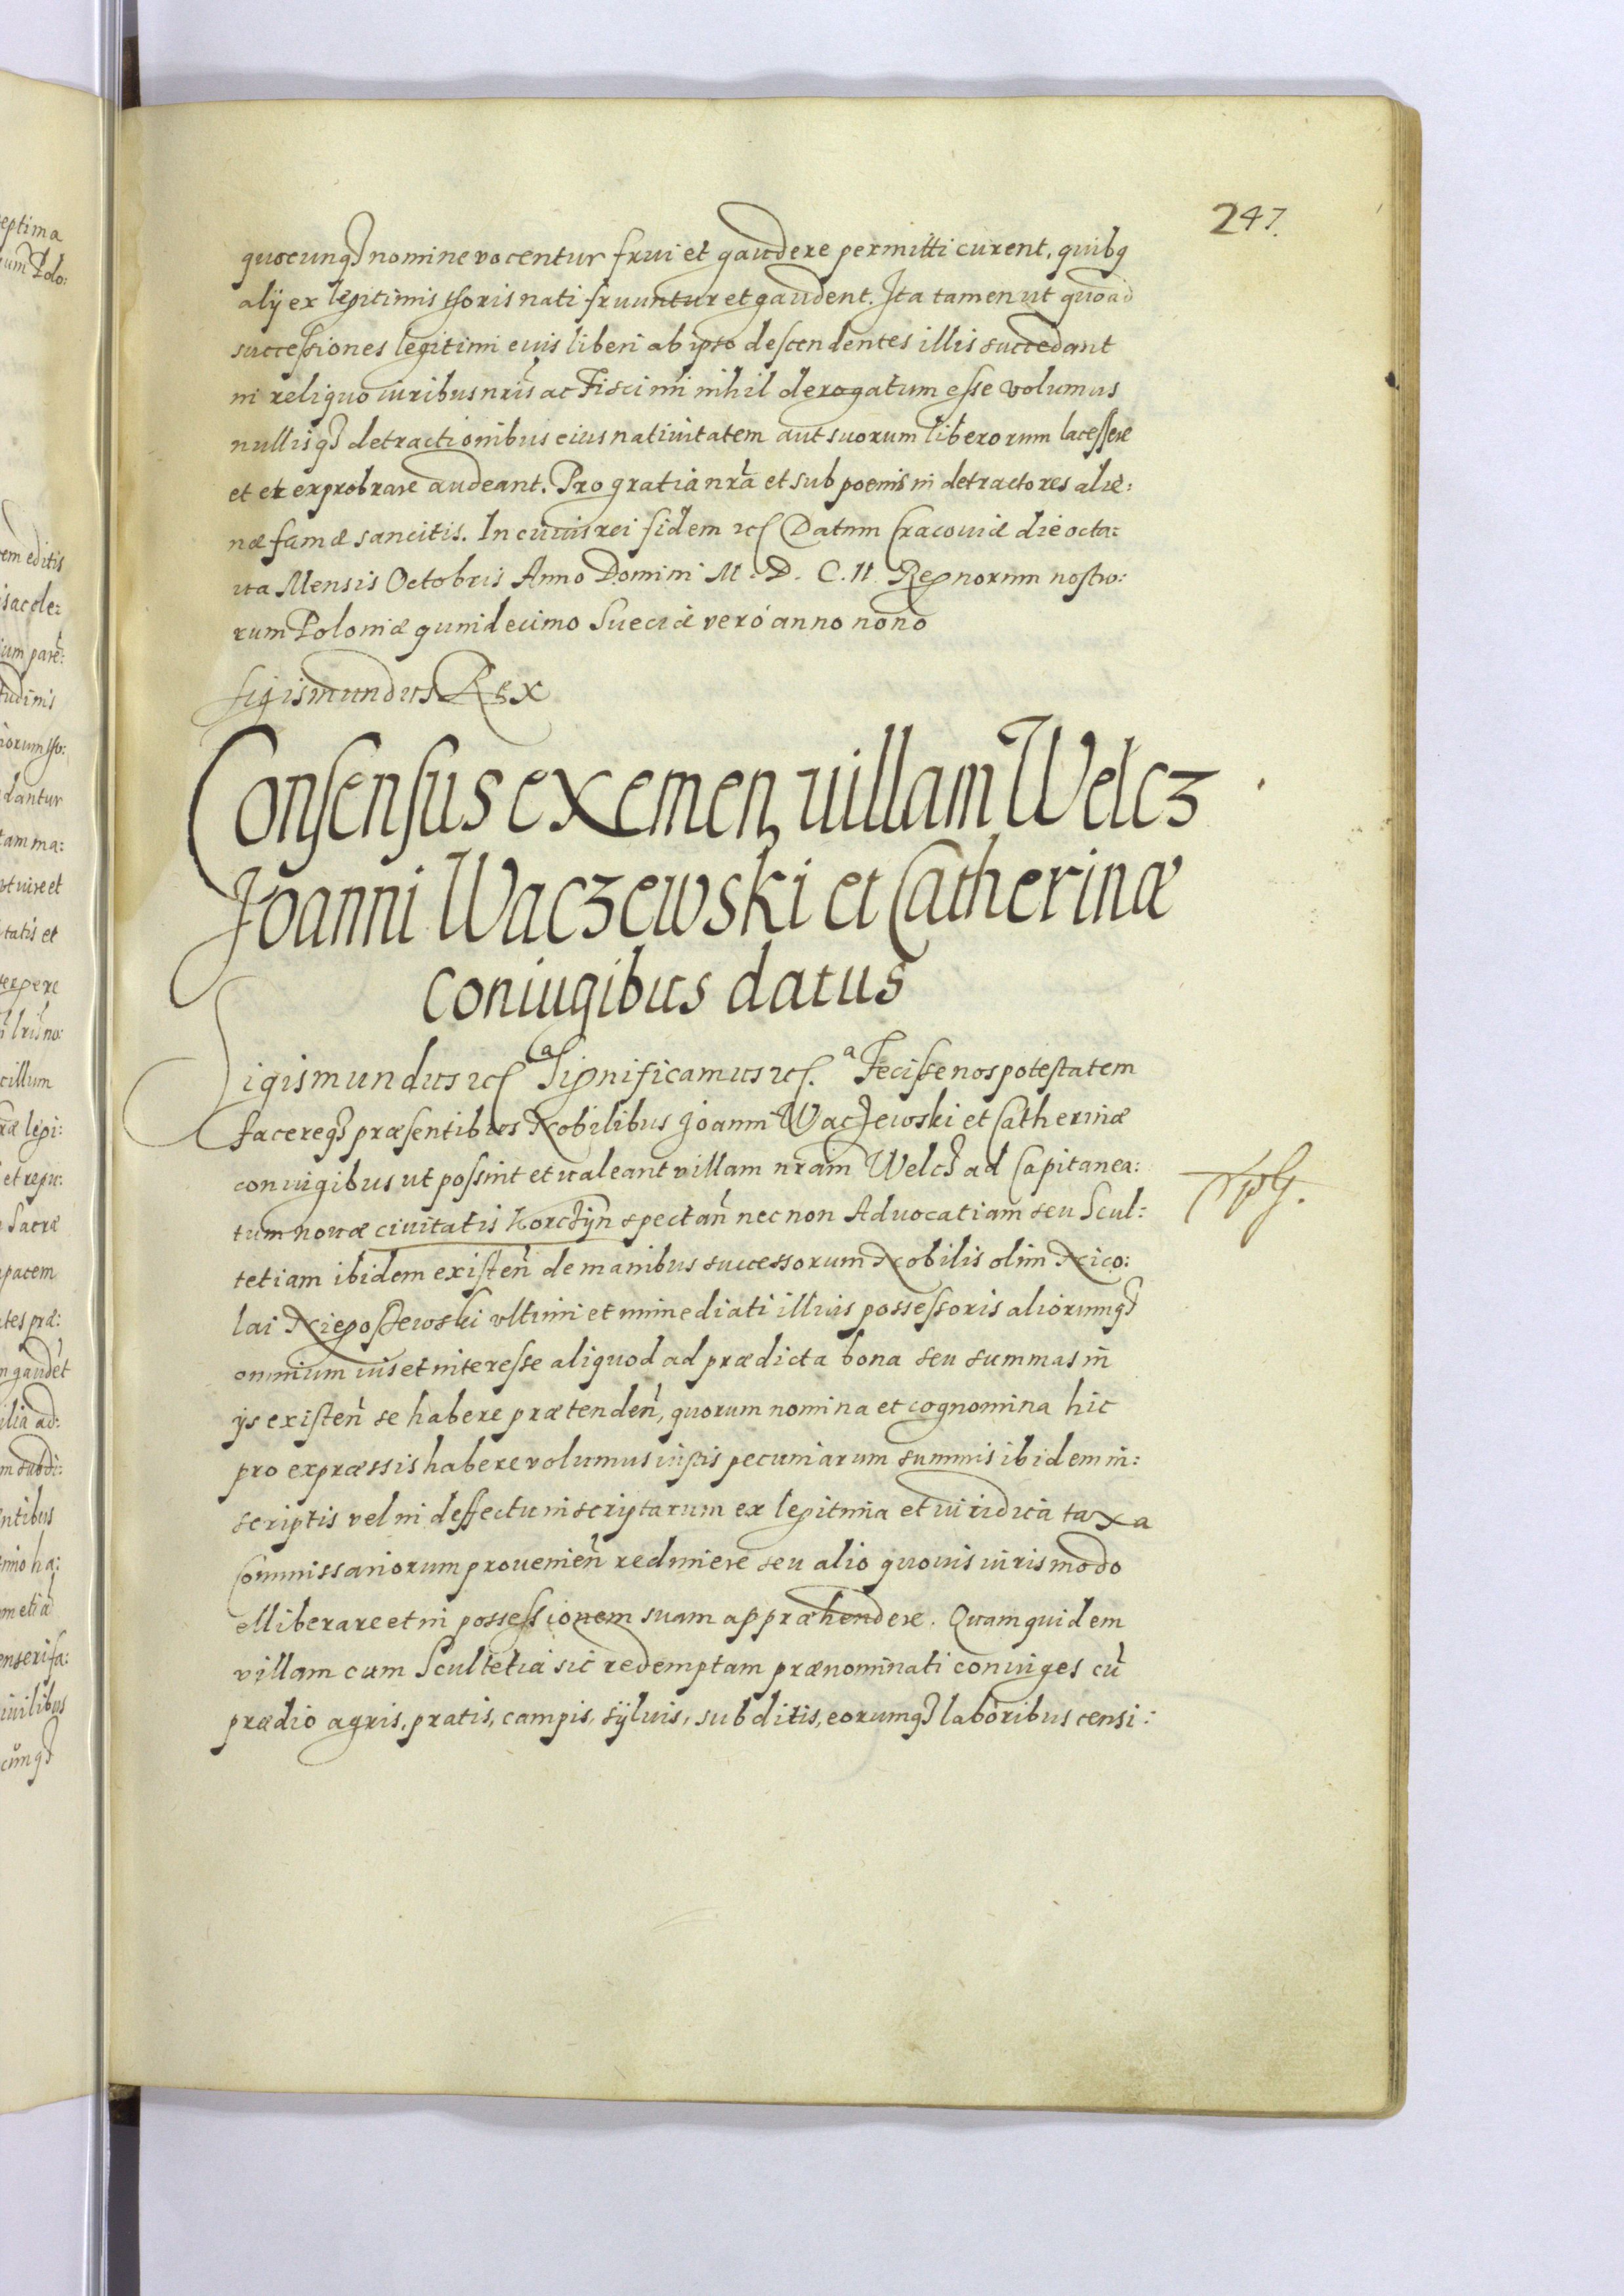 247.
quocunq3 nomine vocentur frui et gaudere permitti curent, quibq
alÿ ex legitimis thoris nati fruuntur et gaudent. Ita tamen ut quoad
successiones legitimi euis liberi ab ipso descendentes illis succedant
in reliquo iuribus nris ac Fisci nri nihil derogatum esse volumus
nullisq3 detractionibus eius natiuitatem aut suorum liberorum lacessere
et ex exprobrare audeant. Pro gratia nra et sub poenis in detractores alie:
næ famæ sancitis. In cuius rei fidem etc Datum Cracouiæ die octa:
ua Mensis Octobris Anno Domini M. D. C. II. Regnorum nostro:
rum Poloniæ quindecimo Sueciæ veró anno nono
Sigismundus Rex
Consensus eXemen villam Welcz
Joanni Waczewski et Catherinæ
coniugibus datus
Sigismundus etc a Significamus etc. a Fecisse nos potestatem
facereq3 præsentibus Nobilibus Joanni Waczewski et Catherinæ
coniugibus ut possint et ualeant villam nram Welcz ad Capitanea:
tum nouæ ciuitatis Korczÿn spectan nec non Aduocatiam seu Scul:
tetiam ibidem existen de manibus successorum Nobilis olim Nico:
lai Niegoszewski vltimi et immediati illius possessoris aliorumq3
omnium ius et interesse aliquod ad prædicta bona seu summas in
ijs existen se habere prætenden, quorum nomina et cognomina hic
pro expræssis habere volumus iustis pecuniarum summis ibidem in:
scriptis vel in deffectu inscriptarum ex legitima et iuridica taxa
Commissariorum prouenien redimere seu alio quouis iuris modo
elliberare et in possessionem suam appræhendere. Quam quidem
villam cum Scultetia sic redemptam prænominati coniuges cu
prædio agris, pratis, campis, sÿluis, subditis, eorumq3 laboribus censi: